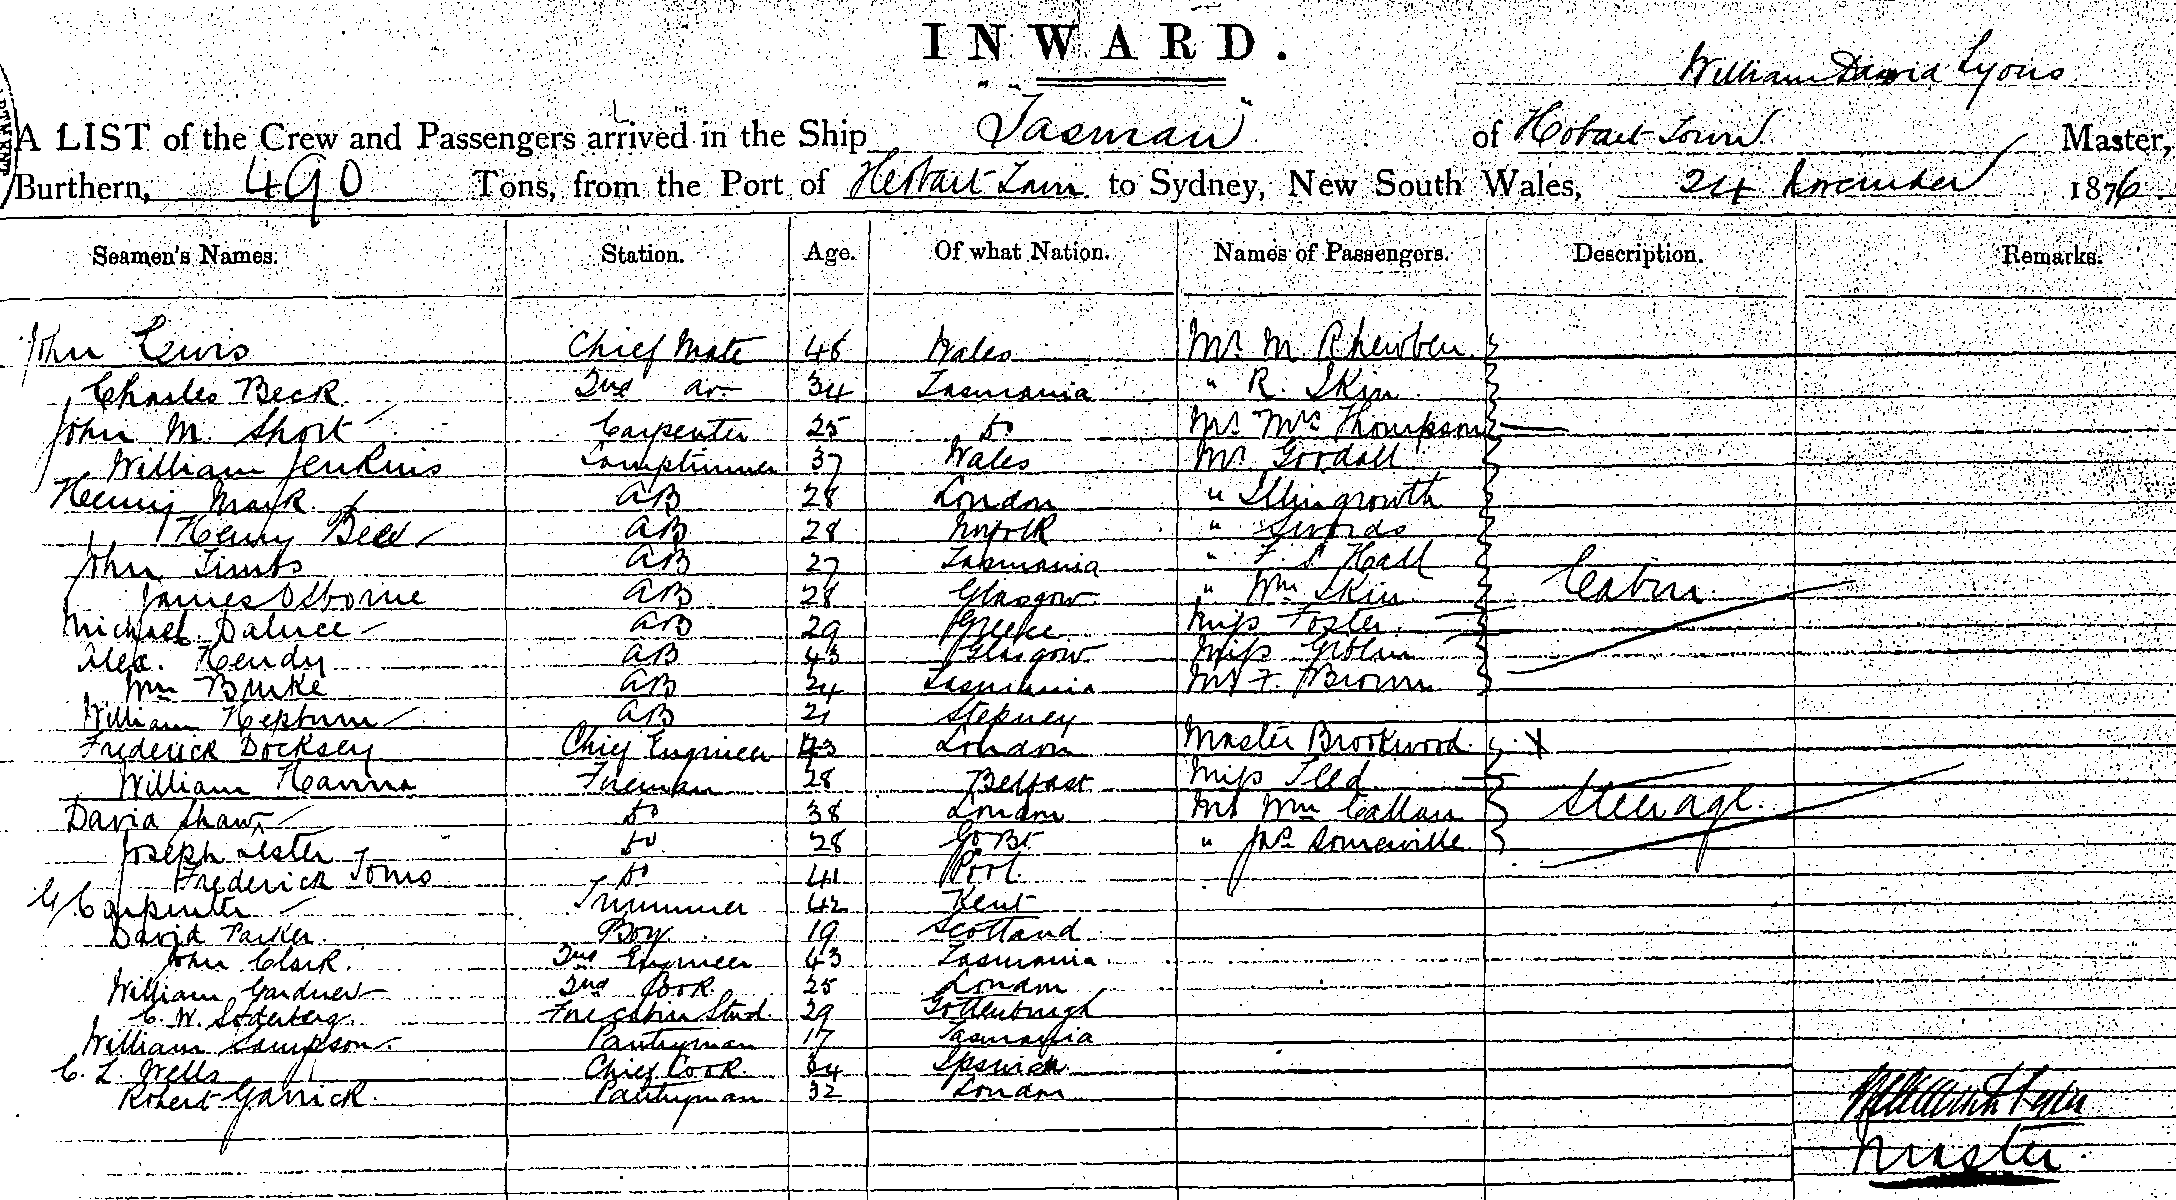 INWARD.
William David Lyons
A LIST of the Crew and Passengers arrived in the Ship "Tasman" of Hobart Town Master,
Burthern, 490 Tons, from the Port of Hobart Town to Sydney, New South Wales, 24 November 1876.
Seamen's Names. Station. Age. Of what Nation. Names of Passengers. Description. Remarks.
John Lewis Chief Mate 46 Wales Mr. M.
Charles Beck 2nd do 34 Tasmania " R. Skin
John M. Short Carpenter 25 Do Mr. Mrs Thompson
William Jenkins 37 Wales Mr. Goodall
Henry Mark AB 28 London " Illingworth
Henry AB 28 Norfolk " Swords
John Timbs AB 27 Tasmania " F. Hall
James Osborne AB 28 Glasgow " Wm Skin Cabin
Michael AB 29 Greece Miss Foster
Alex. Hendy AB 43 Glasgow Miss
Wm Burke AB 24 Tasmania F. Brown
William Hepburn AB 21 Stepney
Frederick Docksey Chief Engineer 43 London Master Brookwood X
William Hanna Fireman 28 Belfast Miss
David Shaw Do 38 London Mr Wm Callan Steerage
Joseph Lester Do 28 " Jas. Somerville
Frederick Toms Do 41
G Carpenter Trimmer 42 Kent
David Parker Boy 19 Scotland
John Clark 2nd Engineer 43 Tasmania
William Gardner 2nd Cook 25 London
C. W. Soderberg 29 Gottenburgh
William Sampson Pantryman 17 Tasmania
C. L. Wells Chief Cook 34 Ipswich
Robert Garrick Pantryman 32 London
Master